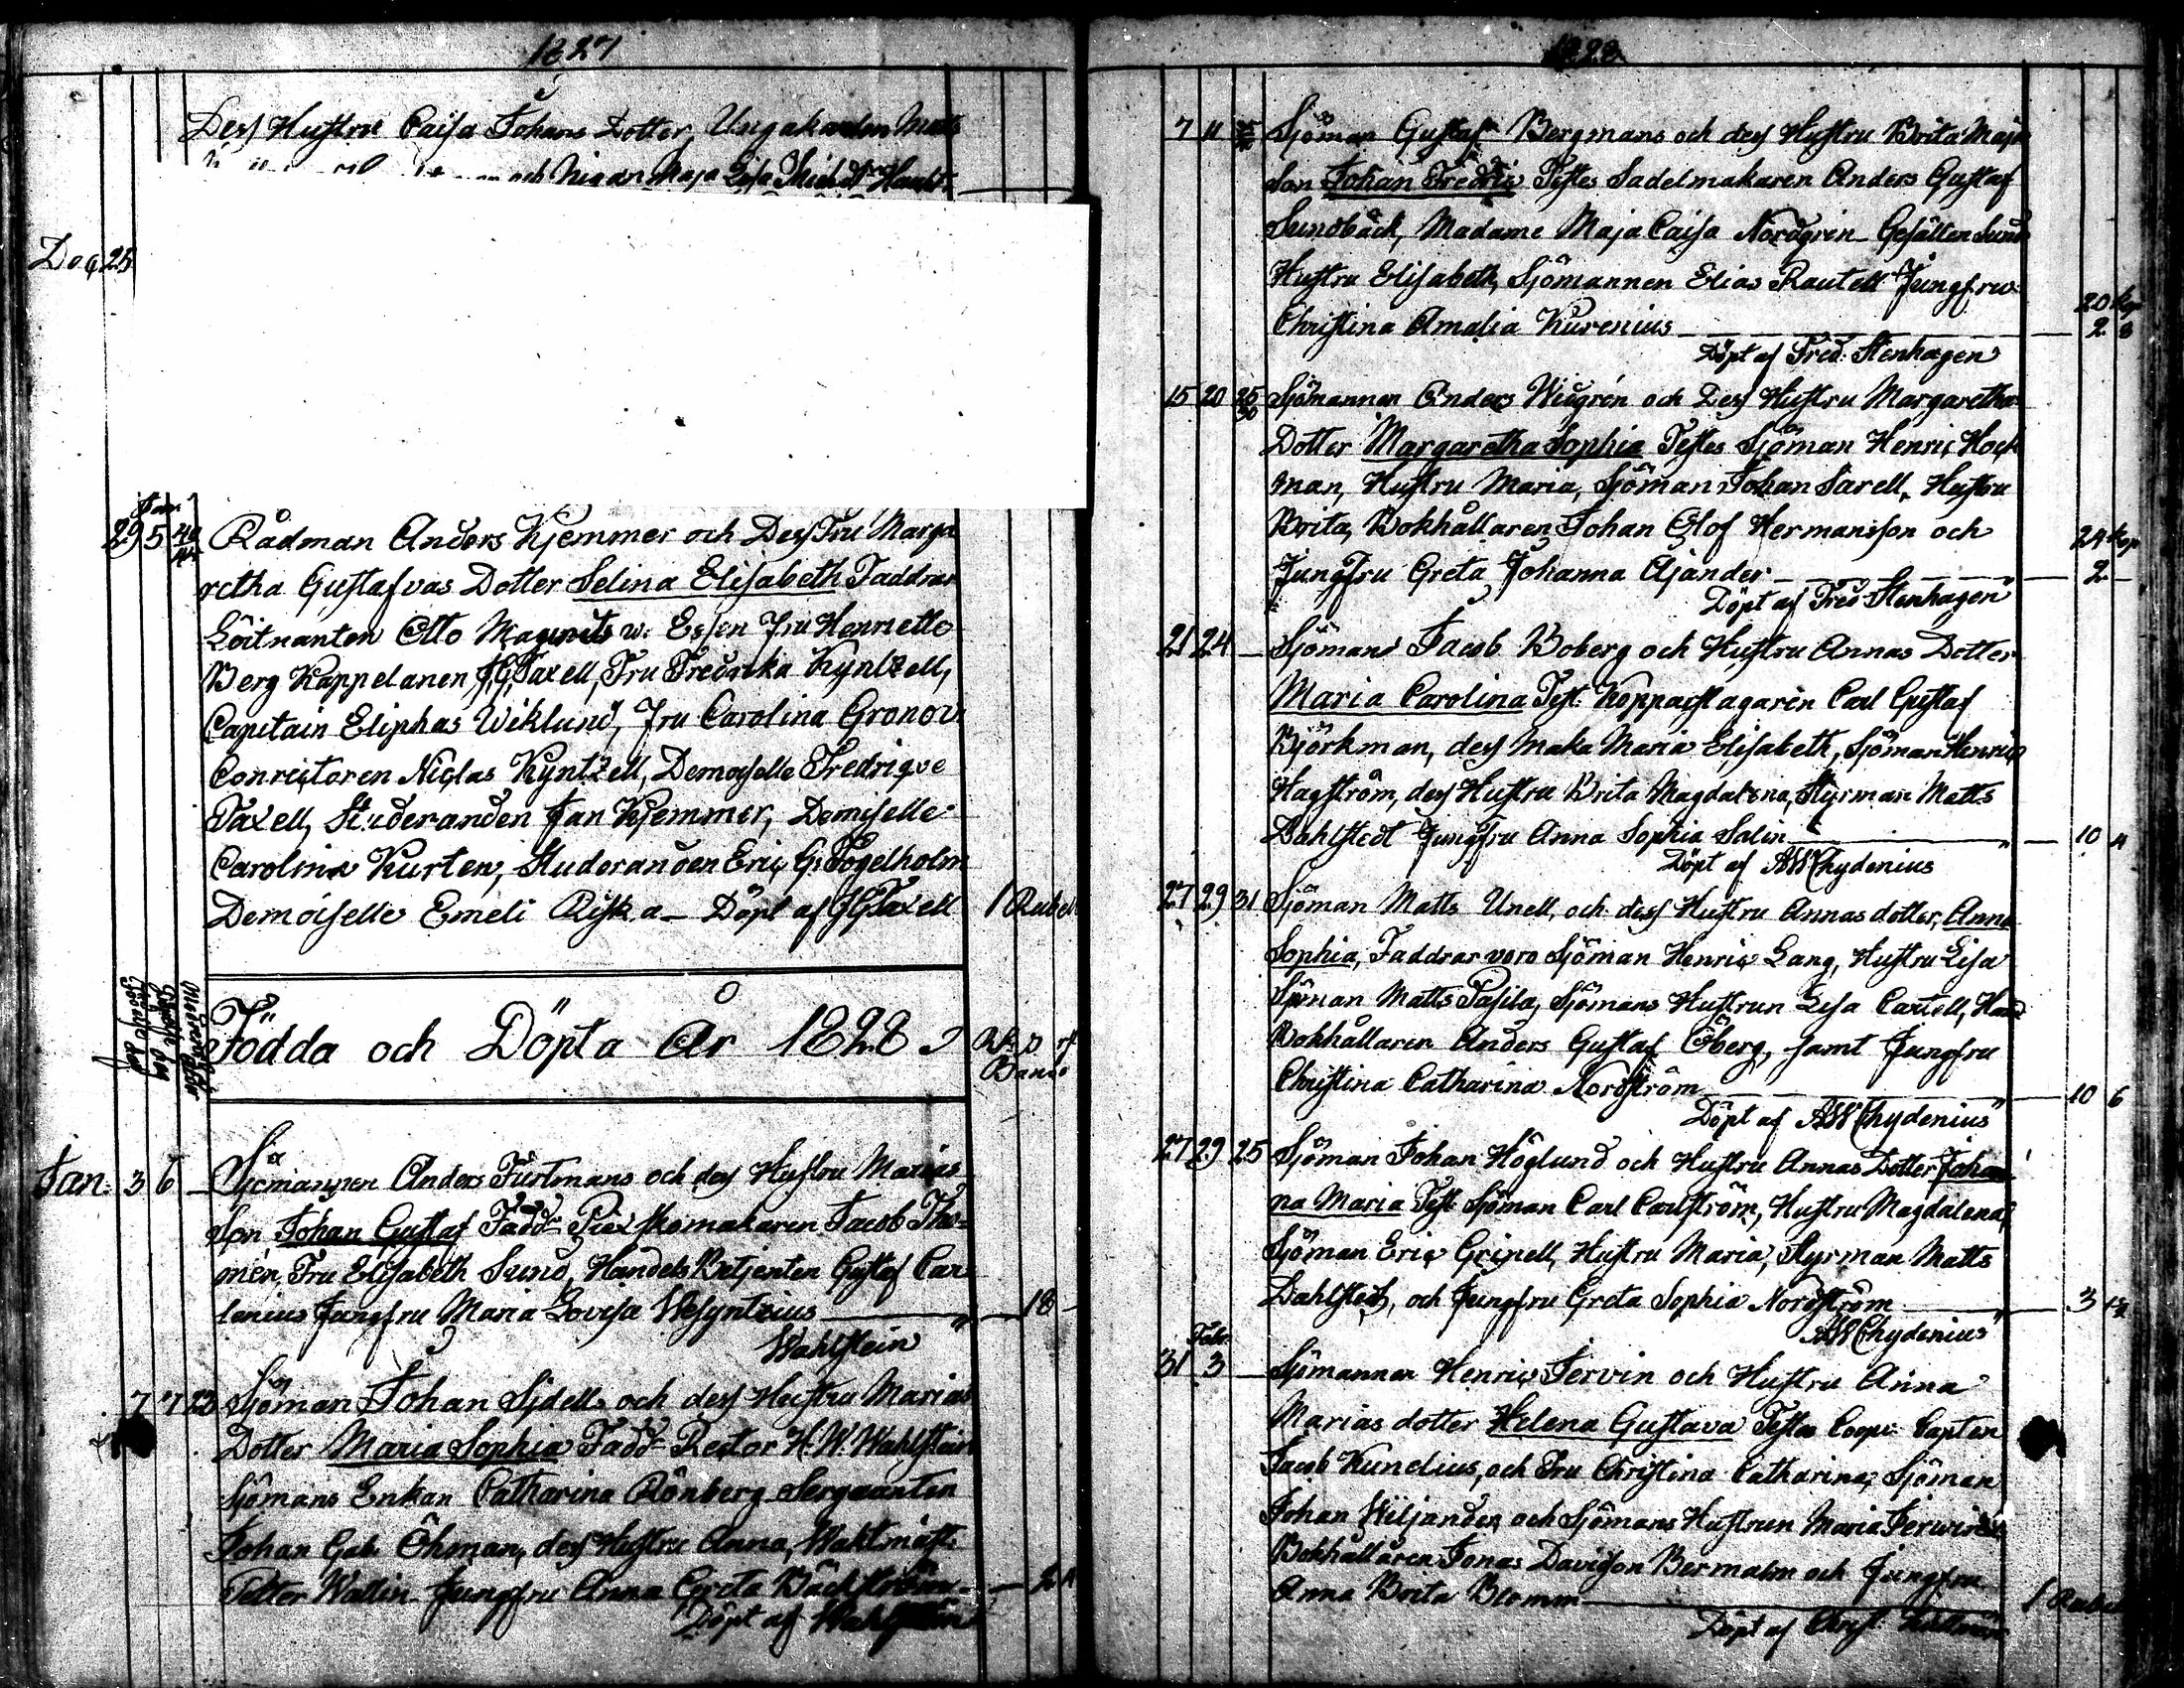 1827
Dess Hustru Caisa Johans Dotter, Ungakarlen Matts
och Pigan Maja Lisa
Dec 25
Jan
29 5 40 Rådman Anders Kjemmer och Dess Fru Marga
retha Gustafvas Dotter Selina Elisabeth Faddrar
Löitnanten Otto Magnus w. Essen Fru Henriette
Berg Kappelanen J.G. Taxell, Fru Fredrika Kyntzell,
Capitain Eliphas Wiklund, Fru Carolina Gronov
Conrectoren Niclas Kyntzell, Demoiselle Fredrique
Taxell, Studeranden Jan Kjemmer, Demoiselle
Carolina Kurten, Studeranden Eric G. Fogelholm
Demoiselle Emeli Riska - Döpt af J G Taxell 1 Rubel
Födda och Döpta År 1828
Banco
Jan: 3 6 - Sjömannen Anders Furtmans och dess Hustru Marias
Son Johan Gustaf Fadd: Skomakaren Jacob Tho=
mén, Fru Elisabeth Sund, Handels Betjenten Gustaf Car
lenius Jungfru Maria Lovisa Wesyntzius - 18 -
Wahlstein
7 7 23 Sjöman Johan Sjdells och dess Hustru Marias
Dotter Maria Sophia Fadd: Rector H. W. Wahlstein
Sjömans Enkan Catharina Rönberg Sergeanten
Johan Gab. Öhman, dess Hustru Anna, Waktmäst:
Petter Wallin Jungfru Anna Greta Bäckström
Döpt af Wahlstein
1828
7 11 Sjöman Gustaf Bergmans och dess Hustru Brita Majas
Son Johan Fredric Testes Sadelmakaren Anders Gustaf
Sundbäck, Madame Maja Caisa Nordgrén Gesällen Sund
Hustru Elisabeth, Sjömannen Elias Rautell Jungfru
Christina Amalia Kurenius 20 kop 2 8
Döpt af Fred: Stenhagen
15 20 25 30 Sjömannen Anders Widgrén och Dess Hustru Margarethas
Dotter Margaretha Sophia Testes Sjöman Henric Hock
man, Hustru Maria, Sjöman Johan Sarell, Hustru
Brita, Bokhållaren Johan Olof Hermansson och
Jungfru Greta Johanna Ajander 24 kop 2 -
Döpt af Fred Stenhagen
21 24 - Sjömans Jacob Boberg och Hustru Annas Dotter
Maria Carolina Test: Koppaslagarén Carl Gustaf
Björkman, dess Maka Maria Elisabeth, Sjöman Henric
Hagström, dess Hustru Brita Magdalena, Styrman Matts
Dahlstedt Jungfru Anna Sophia Salin - 10 4
Döpt af A W Chydenius
27 29 31 Sjöman Matts Unell, och dess Hustru Annas dotter, Anna
Sophia, Faddrar voro Sjöman Henric Lang, Hustru Lisa
Sjöman Matts Pasila, Sjömans Hustrun Lisa Carlell, Hand
Bokhållaren Anders Gustaf Öberg, samt Jungfru
Christina Catharina Nordström - 10 6
Döpt af A W Chydenius
27 29 25 Sjöman Johan Höglund och Hustru Annas Dotter Johan
na Maria Test: Sjöman Carl Carlström, Hustru Magdalena,
Sjöman Eric Grinell, Hustru Maria, Styrman Matts
Dahlstedt, och Jungfru Greta Sophia Nordström - 3
A W Chydenius
Febr:
31 3 - Sjömannen Henric Jervin och Hustru Anna
Marias dotter Helena Gustava Testes Coopv: Capten
Jacob Kunelius, och Fru Christina Catharina, Sjöman
Johan Wiljander och Sjömans Hustrun Maria Jerwin
Bokhållaren Jonas Davidson Bermalm och Jungfru
Anna Brita Blomm 1 Rubel
Döpt af Christ: